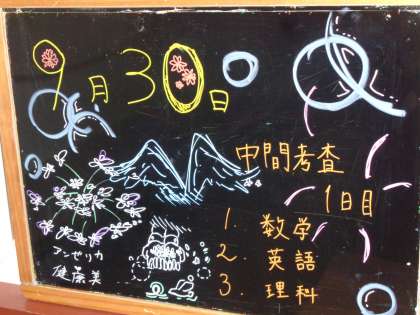 9月30日
中間考査
1日目
1. 数学
2. 英語
3. 理科
アンゼリカ
健藻美